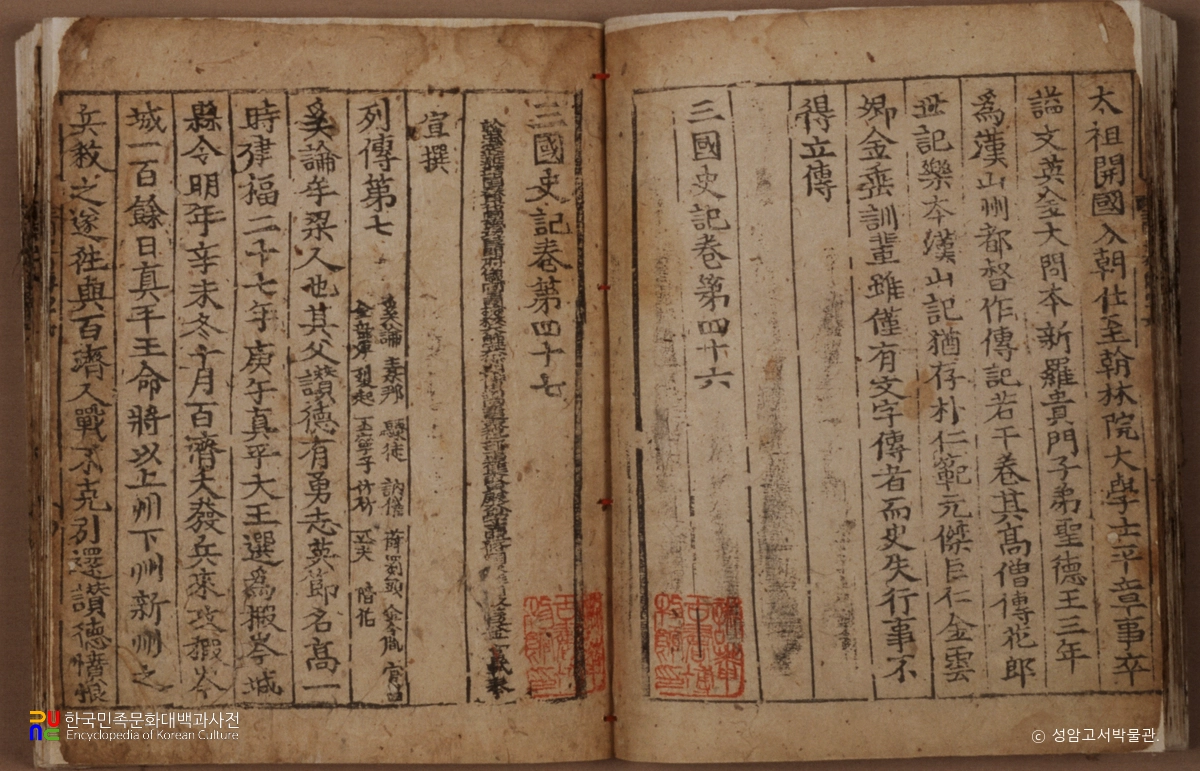 太祖開國入朝仕至翰林院大學士平章事卒
謚文英金大問本新羅貴門子弟聖德王三年
爲漢山州都督作傳記若干卷其高僧傳花郎
世記樂本漢山記猶存朴仁範元傑巨仁金雲
卿金垂訓輩雖僅有文字傳者而史失行事不
得立傳
三國史記卷第四十六
三國史記卷第四十七
宣撰
列傳第七
奚論 素那 驟徒 訥催 薛罽頭
金令胤 官昌 金歆運 裂起 丕寧子 竹竹 匹夫 階伯
奚論牟梁人也其父讃德有勇志英節名高一
時建福二十七年庚午真平大王選爲椵岑城
縣令明年辛未冬十月百濟大發兵來攻椵岑
城一百餘日真平王命將以上州下州新州之
兵救之遂往與百濟人戰不克引還讃德憤恨
한국민족문화대백과사전
Encyclopedia of Korean Culture
© 성암고서박물관.